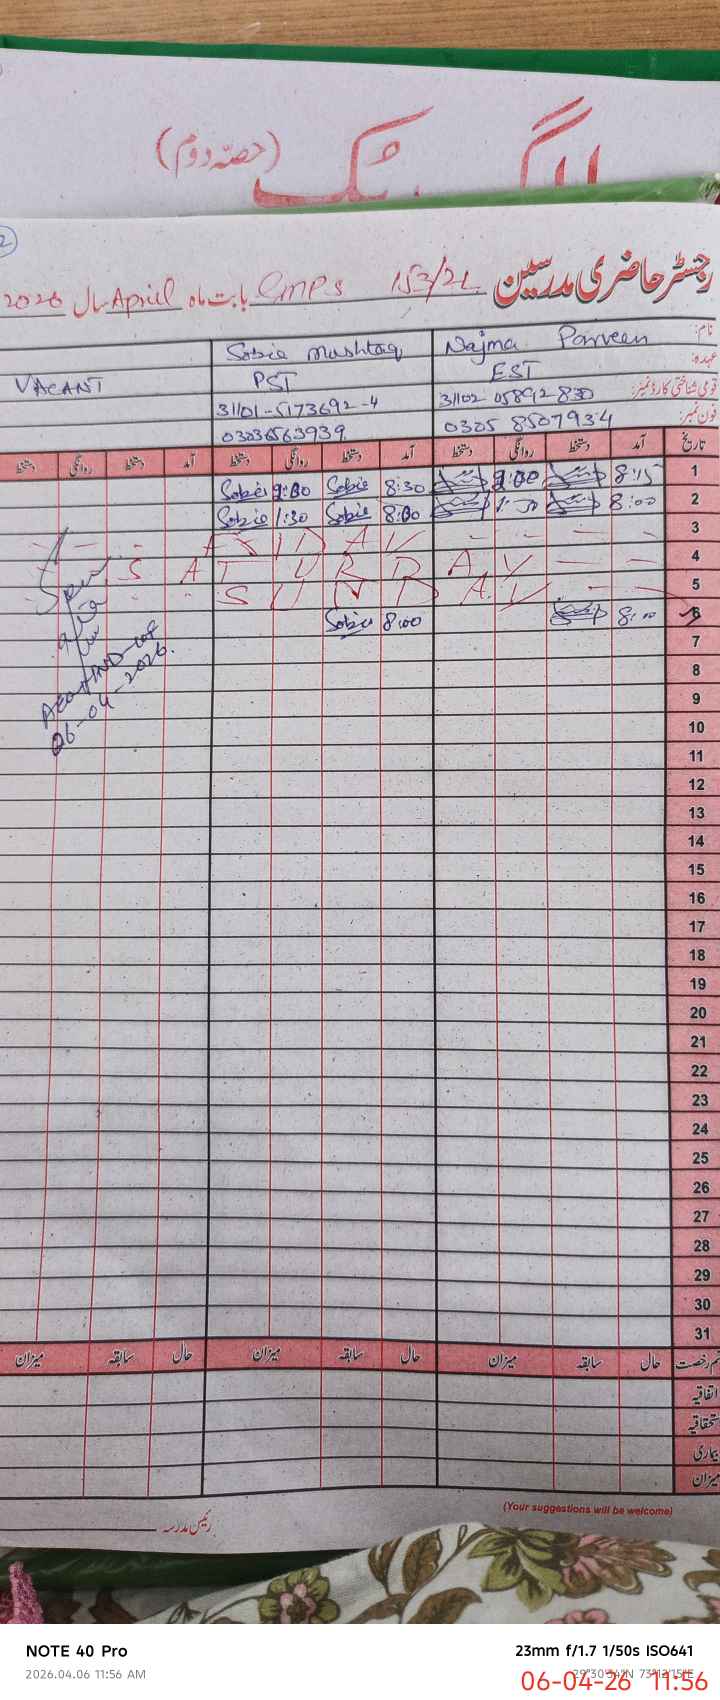 (حصّہ دوم)
لاگ بک
2
رجسٹر حاضری مدرسین GMPS 153/2L بابت ماہ April سال 2026
نام: Najma Parveen Sobia Mushtaq
عہدہ: EST PST VACANT
قومی شناختی کارڈ نمبر: 31102 05892830 31101-5173692-4
فون نمبر: 0305 8507934 03036563939
تاریخ آمد دستخط روانگی دستخط آمد دستخط روانگی دستخط آمد دستخط روانگی دستخط
1 8:15 8:30 Sobia Sobia
2 8:00 8:00 Sobia 1:30 Sobia
3
4 SATURDAY
5 SUNDAY
6 8:00 8:00 Sobia
7
8
9
10
11
12
13
14
15
16
17
18
19
20
21
22
23
24
25
26
27
28
29
30
31
رخصت حال سابقہ میزان حال سابقہ میزان حال سابقہ میزان
اتفاقیہ
استحقاقیہ
بیماری
میزان
06-04-2026.
(Your suggestions will be welcome)
رئیس مدرسہ
NOTE 40 Pro
23mm f/1.7 1/50s ISO641
2026.04.06 11:56 AM
06-04-26 11:56